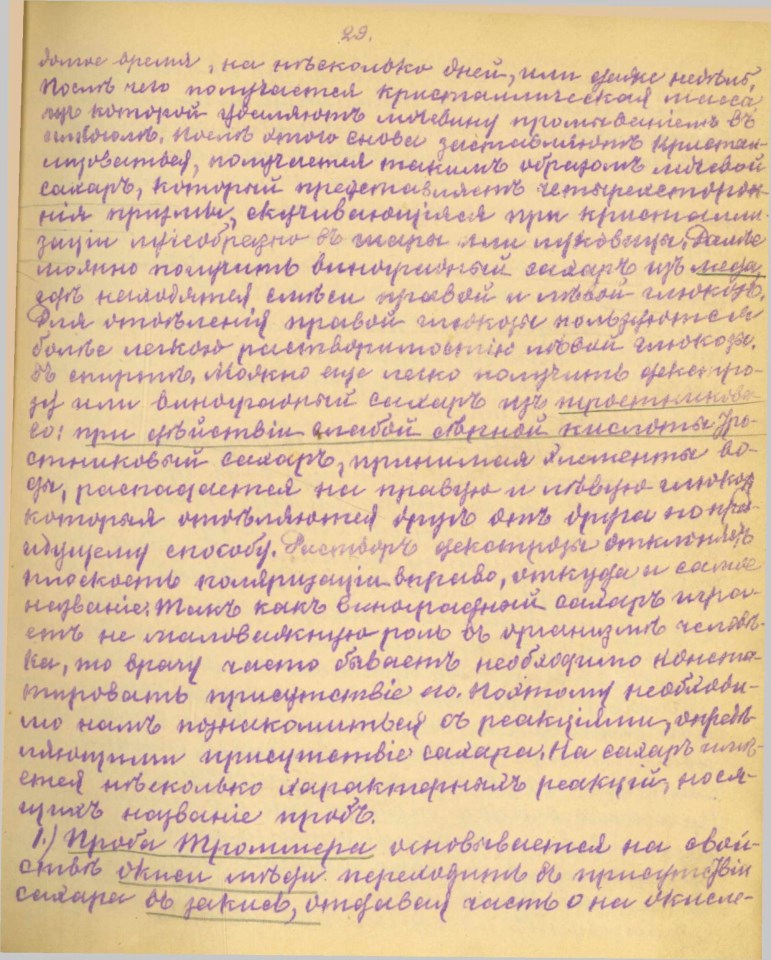 29.
долгое время, на нѣсколько дней, или даже недѣль,
послѣ чего получается кристаллическая масса
изъ которой удаляютъ мочевину промываніемъ въ
алкоголѣ. Послѣ этого снова заставляютъ кристал-
лизоваться, получается такимъ образомъ мочевой
сахаръ, который представляетъ четырехсторон-
нія призмы, скучивающіяся при кристалли-
заціи лучеобразно въ шары или луковицы. Далѣе
можно получить виноградный сахаръ изъ меда,
гдѣ находятся смѣси правой и лѣвой глюкозъ.
Для отдѣленія правой глюкозы пользуются
болѣе легкою растворимостью лѣвой глюкозы
въ спиртѣ. Можно еще легко получить декстро-
зу или виноградный сахаръ изъ тростниково-
го: при дѣйствіи слабой сѣрной кислоты тро-
стниковый сахаръ, принимая элементы во-
ды, распадается на правую и лѣвую глюкозу
которыя отдѣляются другъ отъ друга по пре-
идущему способу. Растворъ декстрозы отклоняетъ
плоскость поляризаціи вправо, откуда и самое
названіе. Такъ какъ виноградный сахаръ игра-
етъ не маловажную роль въ организмѣ человѣ-
ка, то врачу часто бываетъ необходимо конста-
тировать присутствіе его. Поэтому необходи-
мо намъ познакомиться съ реакціями, опредѣ-
ляющими присутствіе сахара. На сахаръ имѣ-
ется нѣсколько характерныхъ реакцій, нося-
щихъ названіе пробъ.
1.) Проба Троммера основывается на свой-
ствѣ окиси мѣди переходить въ присутствіи
сахара въ закись, отдавая часть O на окисле-